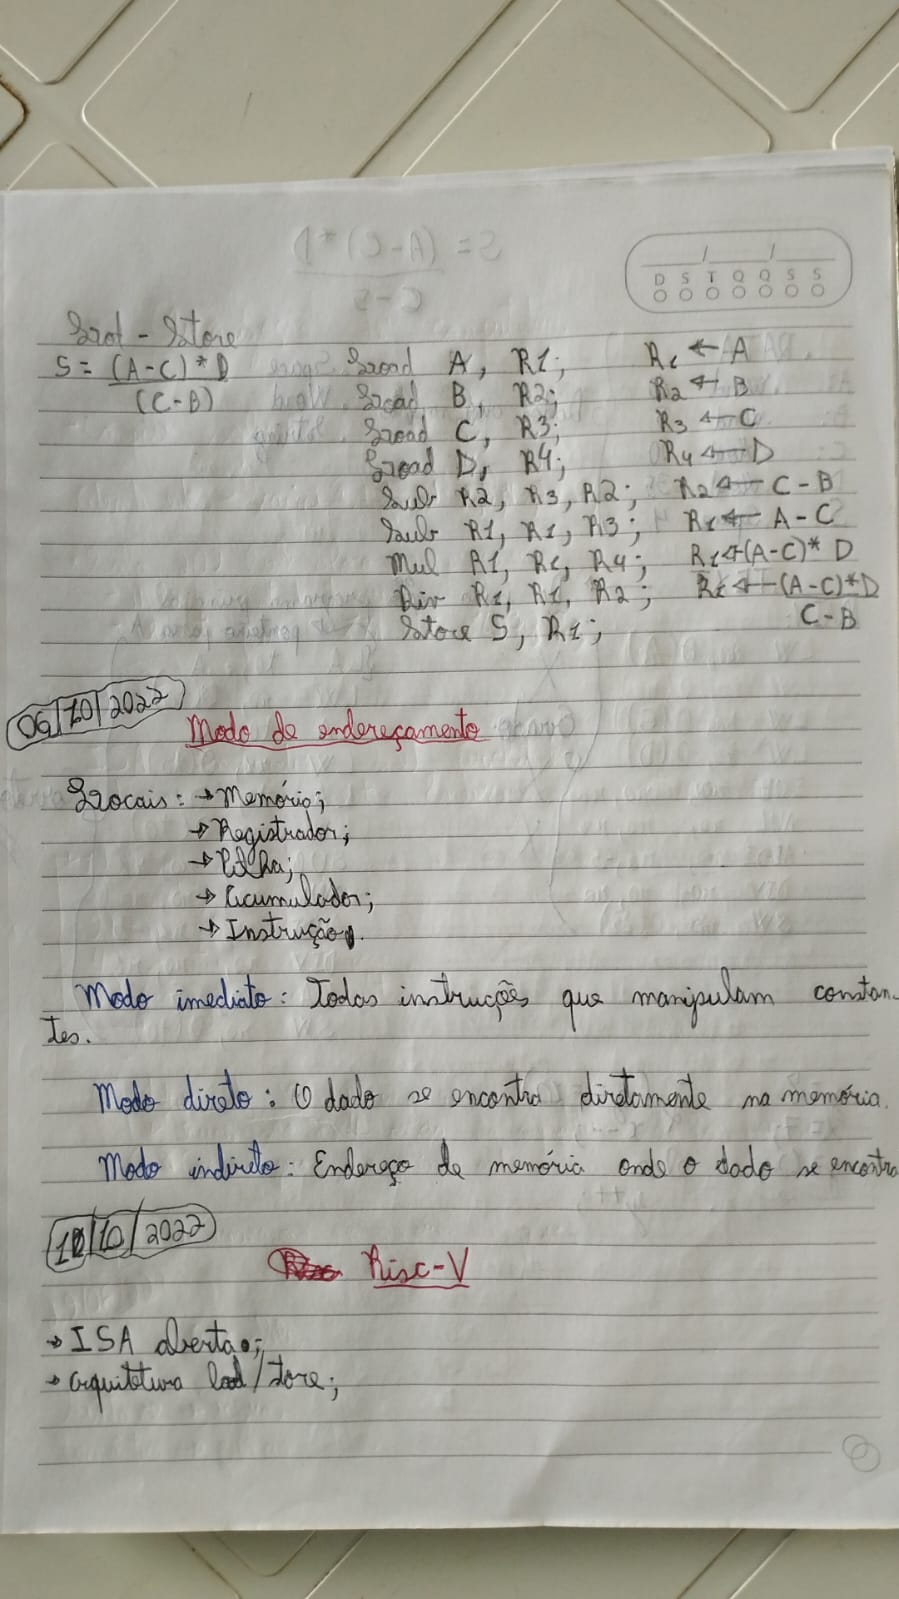 D S T Q Q S S
Load - Store
S = (A-C)*D / (C-B)
Load A, R1; R1 ← A
Load B, R2; R2 ← B
Load C, R3; R3 ← C
Load D, R4; R4 ← D
Sub R2, R3, R2; R2 ← C-B
Sub R1, R1, R3; R1 ← A-C
Mul R1, R1, R4; R1 ← (A-C)* D
Div R1, R1, R2; R1 ← (A-C)*D / C-B
Store S, R1;
06/10/2022
Modo de endereçamento
Locais: → Memória;
→ Registrador;
→ Pilha;
→ Acumulador;
→ Instrução.
Modo imediato: Todas instruções que manipulam constan-
tes.
Modo direto: O dado se encontra diretamente na memória.
Modo indireto: Endereço de memória onde o dado se encontra
/10/2022
Risc-V
→ ISA aberta;
→ arquitetura load/store;